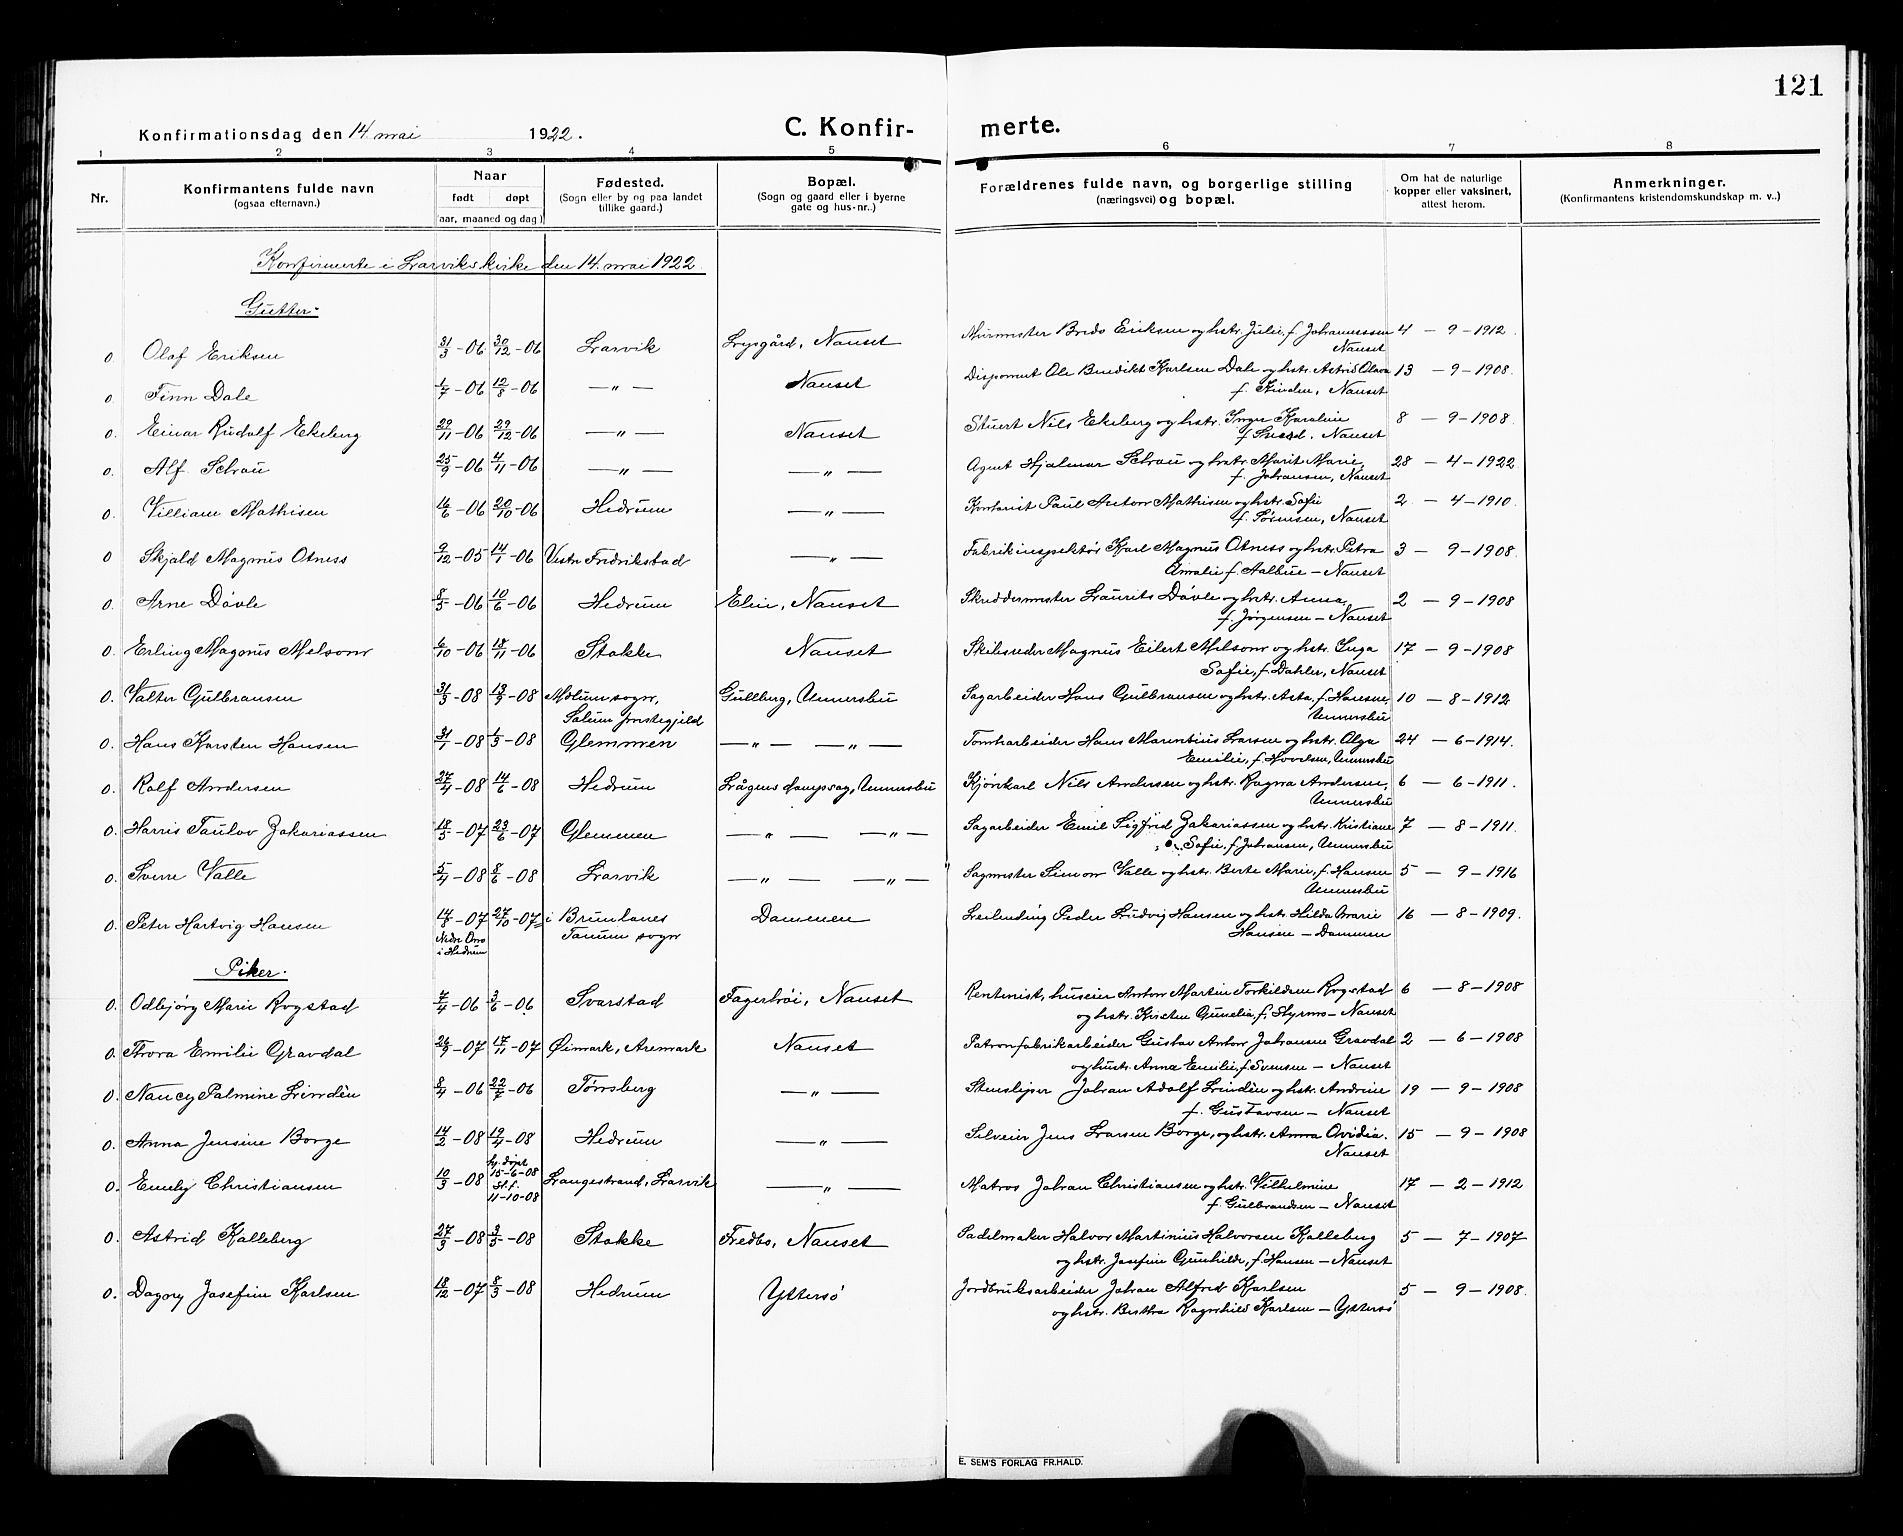 121
Konfirmationsdag den 14. mai 1922. C. Konfir- merte.
1 2 3 4 5 6 7 8
Nr. Konfirmantens fulde navn (ogsaa efternavn.) Naar født døpt (aar, maaned og dag) Fødested. (Sogn eller by og paa landet tillike gaard.) Bopæl. (Sogn og gaard eller i byerne gate og hus-nr..) Forældrenes fulde navn, og borgerlige stilling (næringsvei) og bopæl. Om hat de naturlige kopper eller vaksinert, attest herom. Anmerkninger. (Konfirmantens kristendomskundskap m. v..)
Konfirmerte i Larviks kirke den 14. mai 1922.
Gutter.
O. Olaf Eriksen 31/3-06 30/12-06 Larvik Lysgård, Nanset Murmester Bredo Eriksen og hstr. Julie, f. Johannessen 4 - 9 - 1912.
Nanset
O. Finn Dale 1/7-06 12/8-06 — " — Nanset Disponent Ole Benedikt Karlsen Dale og hstr. Astrid Olava 13 - 9 - 1908.
f. Skinden, Nanset
O. Einar Rudolf Ekeberg 22/11-06 29/12-06 — " — Nanset Stuert Nils Ekeberg og hstr. Inger Karoline 8 - 9 - 1908.
Nanset
O. Alf Schau 25/9-06 4/11-06 — " — — " — Agent Hjalmar Schau og hstr. Marit Marie, 28 - 4 - 1922.
f. Johansen, Nanset
O. Villiam Mathisen 16/6-06 20/10-06 Hedrum — " — Paul Anton Mathisen og hstr. Sofie 2 - 4 - 1910.
f. Sörensen, Nanset
O Skjald Magnus Otness 9/12-05 14/1-06 Vestre Fredrikstad — " — Fabrikinspektör Karl Magnus Otness og hstr. Petra 3 - 9 - 1908.
Amalie f. Aalbue - Nanset
O. Arne Dövle 8/5-06 10/6-06 Hedrum Elin, Nanset Skreddermester Laurits Dövle og hstr. Anna, 2 - 9 - 1908
f. Jörgensen - Nanset
O. Erling Magnus Melsom 6/10-06 18/11-06 Stokke Nanset Skibsreder Magnus Eilert Melsom og hstr. Inga 17 - 9 - 1908
Sofie, f. Dahler, Nanset
O. Valter Gulbransen 31/3-08 13/9-08 Mælum sogn, Gullberg, Unnersbu Sagarbeider Hans Gulbransen og hstr. Asta, f. Hansen, 10 - 8 - 1912
Solum prestegjeld Unnersbu
O. Hans Karsten Hansen 31/1-08 1/3-08 Glemmen — " — — " — Tomtarbeider Hans Marentius Larsen og hstr. Olga 24 - 6 - 1914.
Emilie, f. Hovelsen, Unnersbu
O. Rolf Andersen 27/4-08 14/6-08 Hedrum Lågens dampsag, Unnersbu Kjörekarl Nils Andersen og hstr. Ragna Andersen, 6 - 6 - 1911.
Unnersbu
O. Harris Taulov Zakariassen 18/5-07 23/6-07 Glemmen — " — — " — Sagarbeider Emil Sigfred Zakariassen og hstr. Kristiane 7 - 8 - 1911.
Sofie, f. Johansen, Unnersbu
O. Sverre Valle 5/4-08 8/6-08 Larvik — " — — " — " Sagmester Simon Valle og hstr. Berte Marie, f. Hansen 5 - 9 - 1916
Unnersbu
O. Peter Hartvig Hansen 17/8-07 27/10-07 i Brunlanes Dammen Leilending Peder Ludvig Hansen og hstr Hilda Marie 16 - 8 - 1909.
Nedre Omo Tanum sogn Hansen - Dammen
i Hedrum
Piker.
O. Odbjörg Marie Rogstad 7/4-06 3/6-06 Svarstad Fagerhöi, Nanset Rentenist, huseier Anton Martin Torkildsen Rogstad 6 - 8 - 1908
og hstr. Kirsten Gunelia, f. Styrmo - Nanset
O. Thora Emilie Gravdal 24/9-07 17/11-07 Øimark, Aremark Nanset Patronfabrikarbeider Gustav Anton Johannes Gravdal 2 - 6 - 1908
og hustr. Anna Emilie, f. Svensen - Nanset
O. Nancy Palmine Lindèn 8/4-06 22/7-06 Tønsberg — " — Stensliper Johan Adolf Lindèn og hstr. Andrine 19 - 9 - 1908
f. Gustavsen - Nanset
O. Anna Jensine Borge 14/2-08 19/4-08 Hedrum — " — Selveier Jens Larsen Borge, og hstr. Anna Ovidia. 15 - 9 - 1908
Nanset
O. Emily Christiansen 10/3-08 hj. döpt 15-6-08 St. f. 11-10-08 Langestrand, Larvik — " — Matros Johan Christiansen og hstr. Vilhelmine 17 - 2 - 1912
f. Gulbrandsen - Nanset
O. Astrid Kalleberg 27/3-08 3/5-08 Stokke Fredbo, Nanset Sadelmaker Halvor Martinius Halvorsen Kalleberg 5 - 7 - 1907
og hstr. Josefine Gunhilde, f. Hansen - Nanset
O. Dagny Josefine Karlsen 18/12-07 8/3-08 Hedrum Yttersö Jordbruksarbeider Johan Alfred Karlsen 5 - 9 - 1908.
og hstr. Berthe Ragnhild Karlsen - Yttersö
E. SEM'S FORLAG FR.HALD.